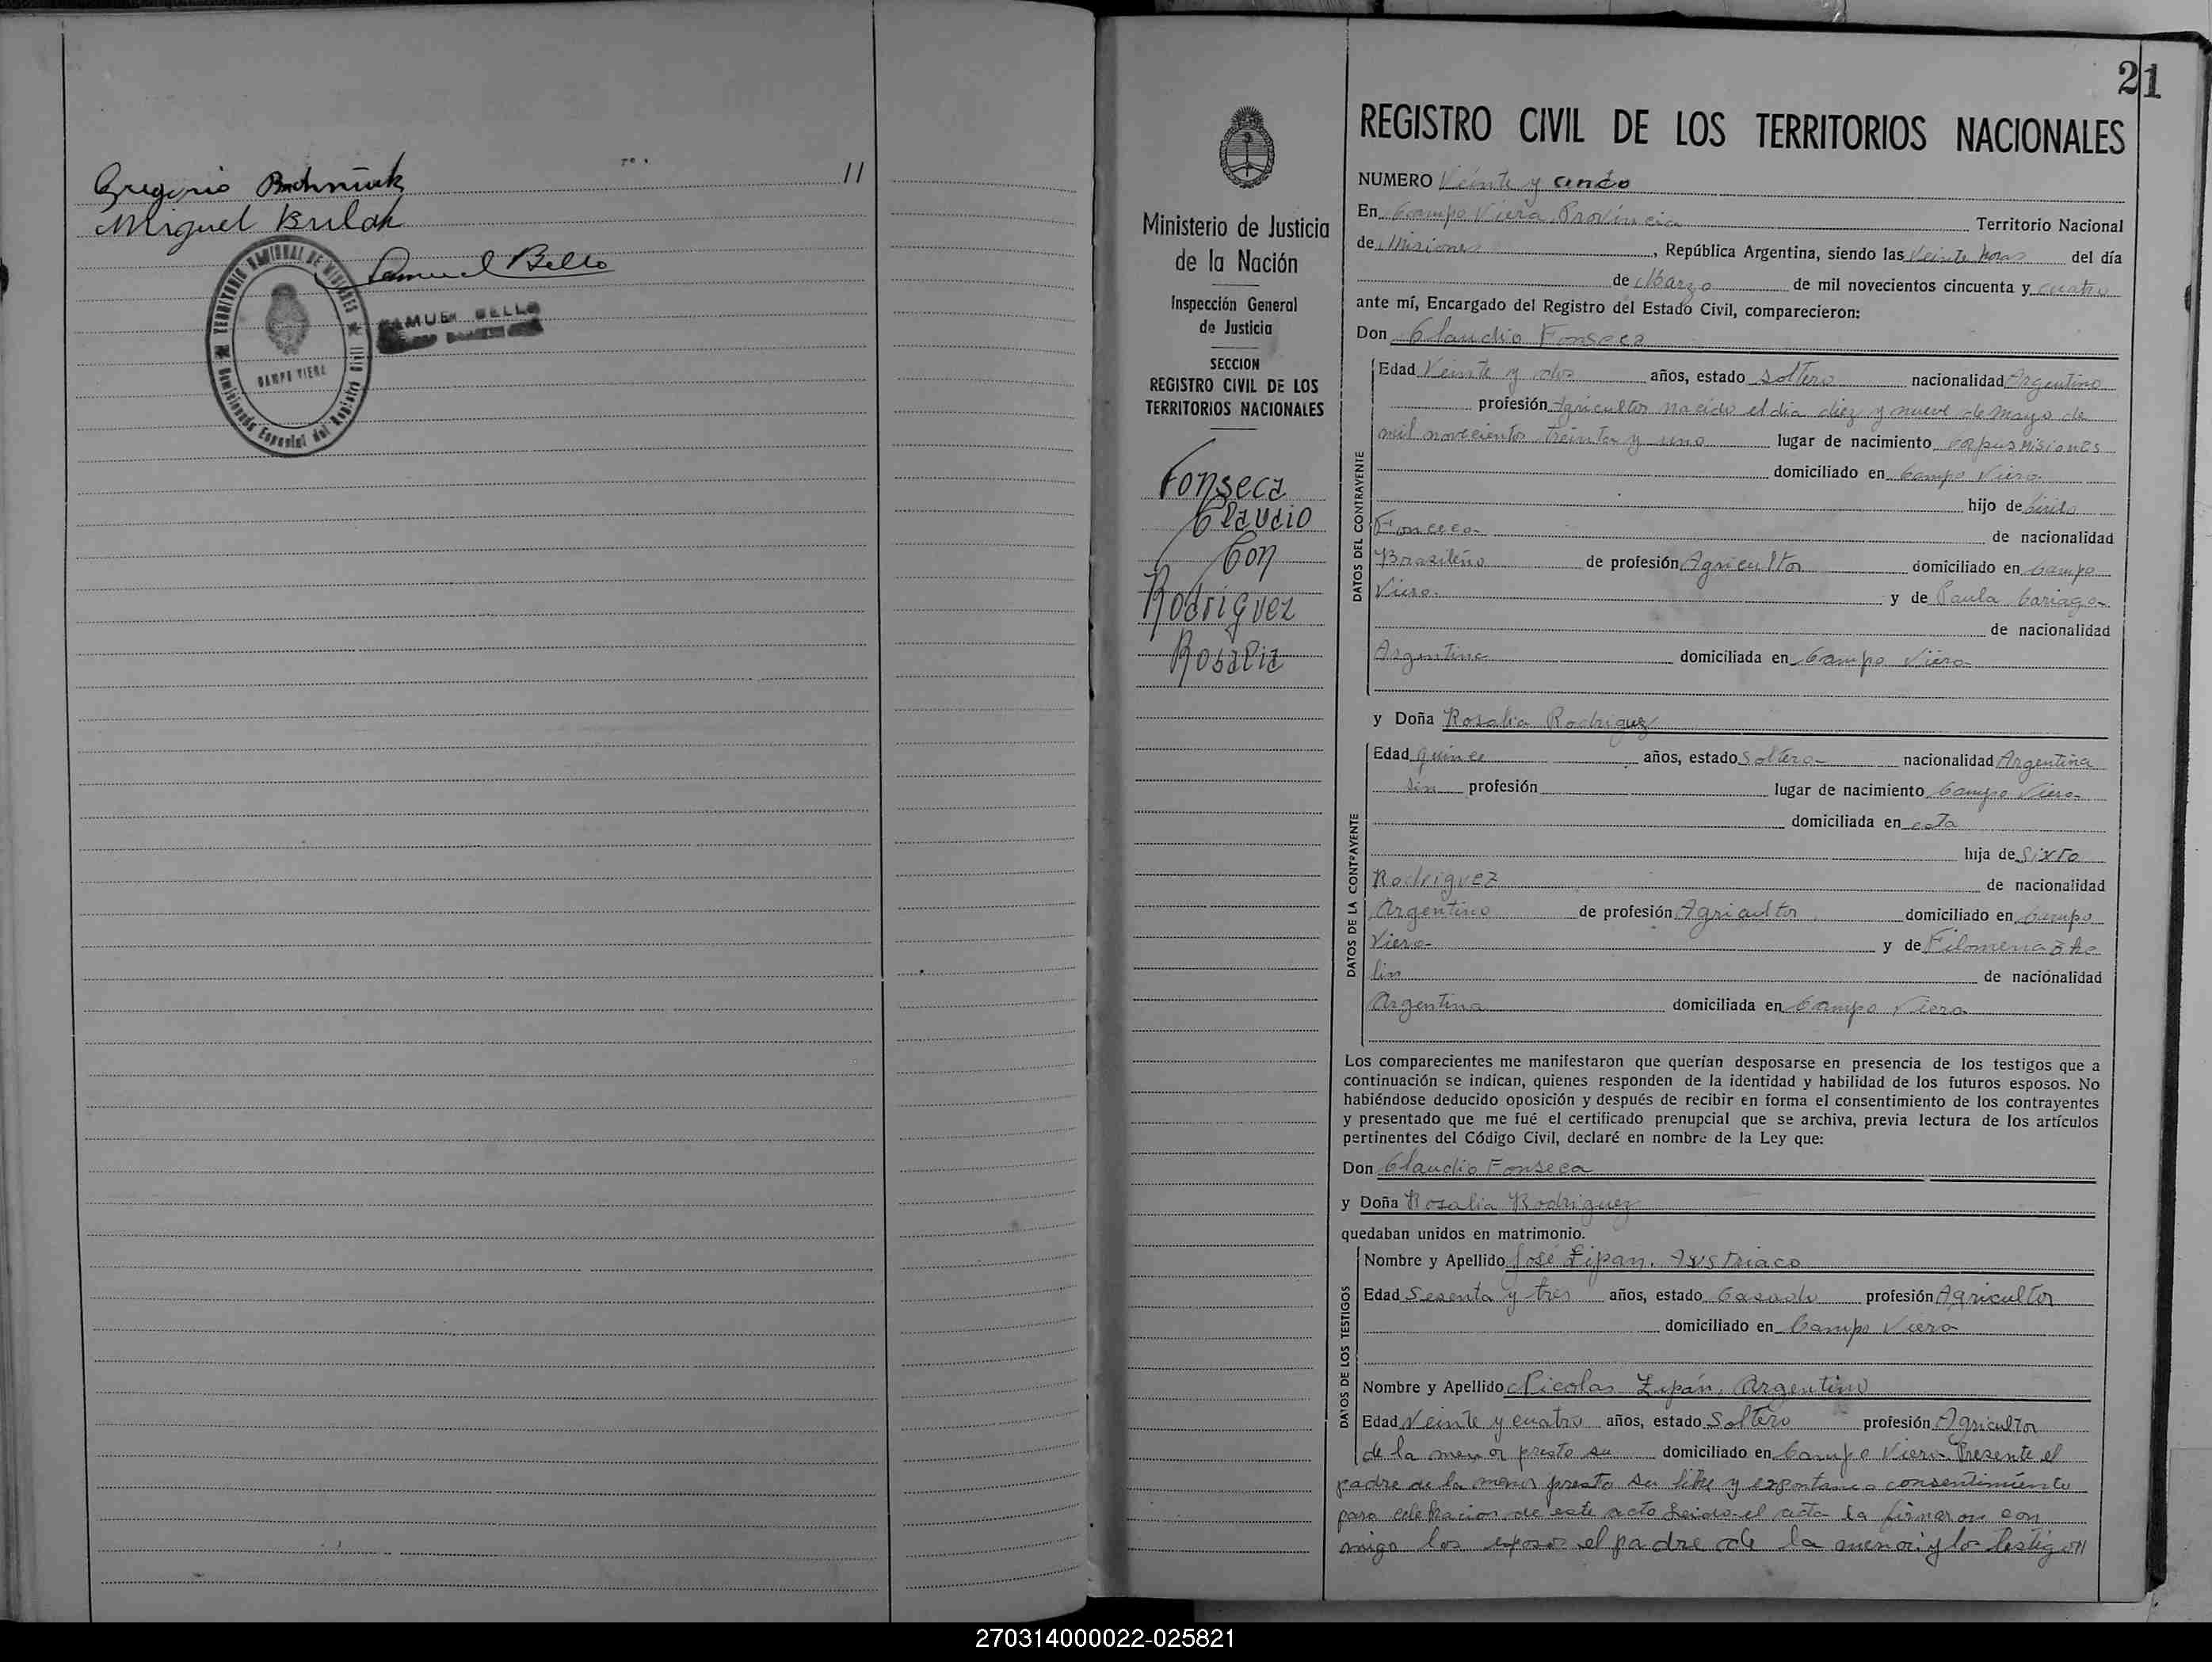 Gregorio
11
Miguel Bulak
Samuel Bello
TERRITORIO NACIONAL DE MISIONES
SAMUEL BELLO
CAMPO VIERA
Comisionado Especial del Registro Civil
21
Ministerio de Justicia
de la Nación
Inspección General
de Justicia
SECCION
REGISTRO CIVIL DE LOS
TERRITORIOS NACIONALES
Fonseca
Claudio
Con
Rodriguez
Rosalia
REGISTRO CIVIL DE LOS TERRITORIOS NACIONALES
NUMERO Veinte y
En Campo Viera Provincia Territorio Nacional
de Misiones, República Argentina, siendo las Veinte horas del día
de Marzo de mil novecientos cincuenta y cuatro
ante mí, Encargado del Registro del Estado Civil, comparecieron:
Don Claudio Fonseca
DATOS DEL CONTRAYENTE
Edad Veinte y dos años, estado soltero nacionalidad Argentino
profesión Agricultor nacido el dia diez y nueve de mayo de
mil novecientos treinta y uno lugar de nacimiento Corpus Misiones
domiciliado en Campo Viera
hijo de Cirilo
Fonseca de nacionalidad
Brasileño de profesión Agricultor domiciliado en Campo
Viera y de Paula Cariaga
de nacionalidad
Argentina domiciliada en Campo Viera
y Doña Rosalia Rodriguez
DATOS DE LA CONTRAYENTE
Edad quince años, estado soltera nacionalidad Argentina
sin profesión lugar de nacimiento Campo Viera
domiciliada en esta
hija de Sixto
Rodriguez de nacionalidad
Argentino de profesión Agricultor domiciliado en Campo
Viera y de Filomena
lin de nacionalidad
Argentina domiciliada en Campo Viera
Los comparecientes me manifestaron que querían desposarse en presencia de los testigos que a
continuación se indican, quienes responden de la identidad y habilidad de los futuros esposos. No
habiéndose deducido oposición y después de recibir en forma el consentimiento de los contrayentes
y presentado que me fué el certificado prenupcial que se archiva, previa lectura de los artículos
pertinentes del Código Civil, declaré en nombre de la Ley que:
Don Claudio Fonseca
y Doña Rosalia Rodriguez
quedaban unidos en matrimonio.
DATOS DE LOS TESTIGOS
Nombre y Apellido José Zipan. Austriaco
Edad Sesenta y tres años, estado Casado profesión Agricultor
domiciliado en Campo Viera
Nombre y Apellido Nicolas Zipán, Argentino
Edad Veinte y cuatro años, estado Soltero profesión Agricultor
de la menor presto su domiciliado en Campo Viera Presente el
padre de la menor presto su libre y espontaneo consentimiento
para celebracion de este acto Leido el acta la firmaron con
migo los esposos el padre de la menor y los testigos
270314000022-025821